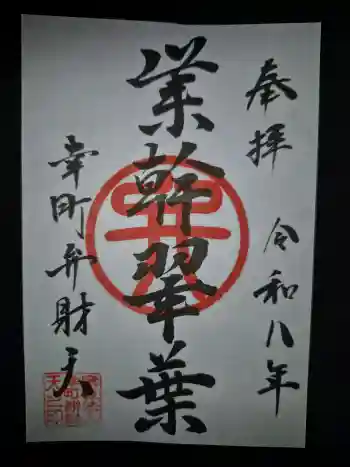 奉拝
令和八年
業幹翠葉
幸町弁財天